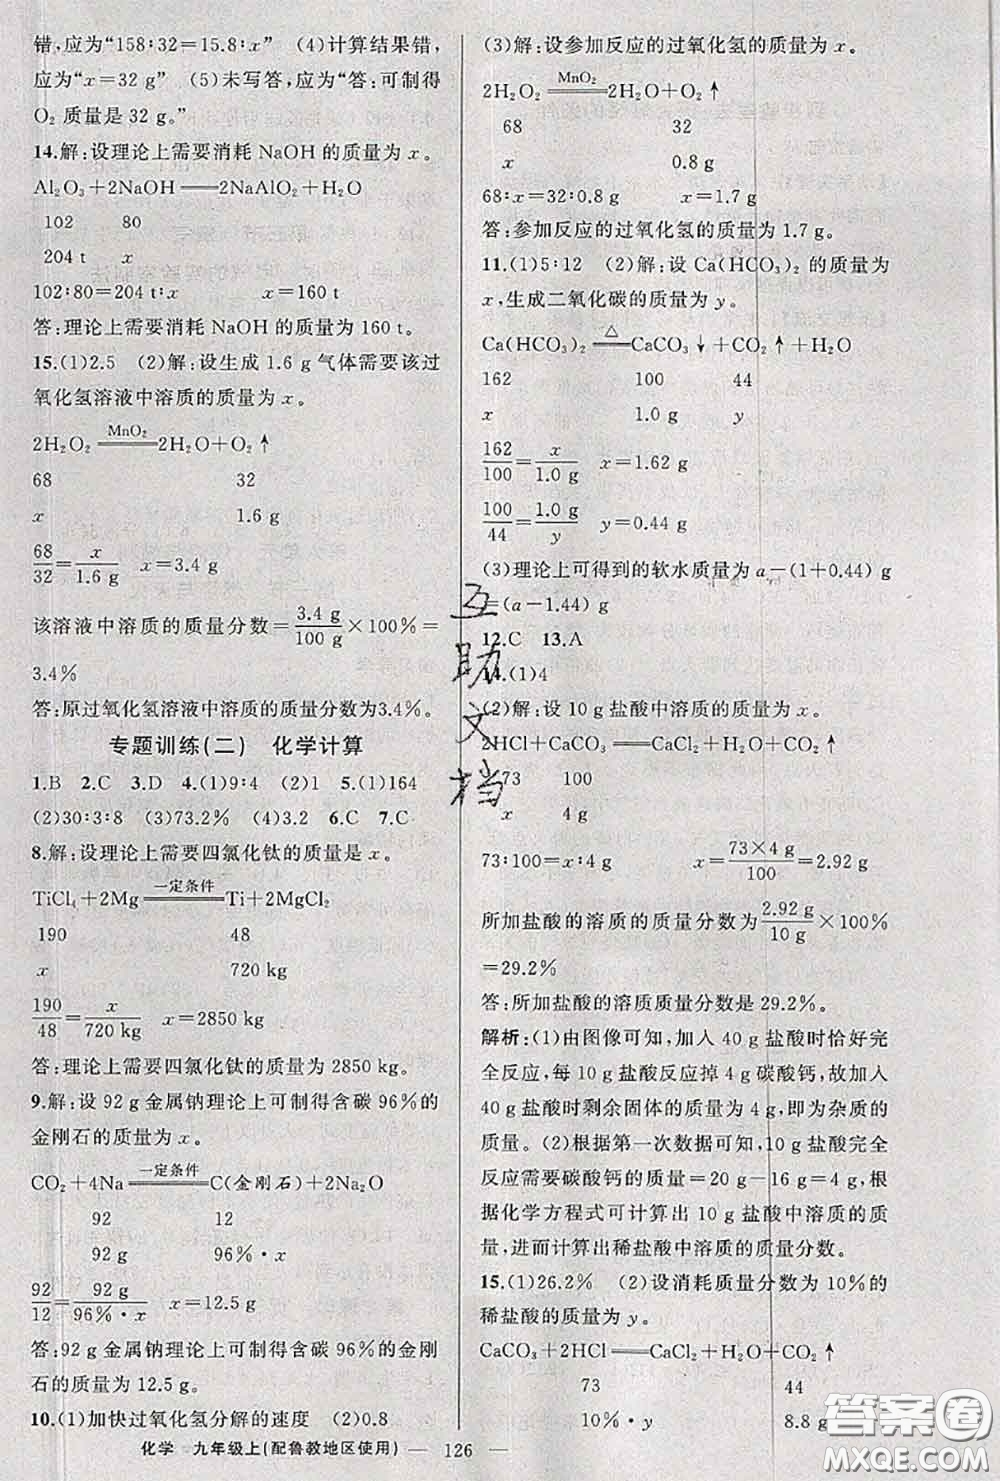 错,应为“158∶32=15.8∶x” (4)计算结果错,
应为“x=32 g” (5)未写答,应为“答:可制得
O₂ 质量是 32 g。”
14.解:设理论上需要消耗 NaOH 的质量为 x。
Al₂O₃+2NaOH══2NaAlO₂+H₂O
102 80
204 t x
102∶80=204 t∶x x=160 t
答:理论上需要消耗 NaOH 的质量为 160 t。
15.(1)2.5 (2)解:设生成 1.6 g 气体需要该过
氧化氢溶液中溶质的质量为 x。
2H₂O₂ MnO₂══2H₂O+O₂↑
68 32
x 1.6 g
68/32=x/1.6 g x=3.4 g
该溶液中溶质的质量分数=3.4 g/100 g×100%=
3.4%
答:原过氧化氢溶液中溶质的质量分数为3.4%。
专题训练(二) 化学计算
1.B 2.C 3.D 4.(1)9∶4 (2)1 5.(1)164
(2)30∶3∶8 (3)73.2% (4)3.2 6.C 7.C
8.解:设理论上需要四氯化钛的质量是 x。
TiCl₄+2Mg 一定条件══Ti+2MgCl₂
190 48
x 720 kg
190/48=x/720 kg x=2850 kg
答:理论上需要四氯化钛的质量为 2850 kg。
9.解:设 92 g 金属钠理论上可制得含碳 96%的
金刚石的质量为 x。
CO₂+4Na 一定条件══C(金刚石)+2Na₂O
92 12
92 g 96%·x
92/12=92 g/96%·x x=12.5 g
答:92 g 金属钠理论上可制得含碳 96%的金刚
石的质量为 12.5 g。
10.(1)加快过氧化氢分解的速度 (2)0.8
(3)解:设参加反应的过氧化氢的质量为 x。
2H₂O₂ MnO₂══2H₂O+O₂↑
68 32
x 0.8 g
68∶x=32∶0.8 g x=1.7 g
答:参加反应的过氧化氢的质量为 1.7 g。
11.(1)5∶12 (2)解:设 Ca(HCO₃)₂ 的质量为
x,生成二氧化碳的质量为 y。
Ca(HCO₃)₂ △══CaCO₃↓+CO₂↑+H₂O
162 100 44
x 1.0 g y
162/100=x/1.0 g x=1.62 g
100/44=1.0 g/y y=0.44 g
(3)理论上可得到的软水质量为 a-(1+0.44) g
=(a-1.44) g
12.C 13.A
14.(1)4
(2)解:设 10 g 盐酸中溶质的质量为 x。
2HCl+CaCO₃══CaCl₂+H₂O+CO₂↑
73 100
x 4 g
73∶100=x∶4 g x=73×4 g/100=2.92 g
所加盐酸的溶质的质量分数为2.92 g/10 g×100%
=29.2%
答:所加盐酸的溶质质量分数是 29.2%。
解析:(1)由图像可知,加入 40 g 盐酸时恰好完
全反应,每 10 g 盐酸反应掉 4 g 碳酸钙,故加入
40 g 盐酸时剩余固体的质量为 4 g,即为杂质的
质量。(2)根据第一次数据可知,10 g 盐酸完全
反应需要碳酸钙的质量=20 g-16 g=4 g,根
据化学方程式可计算出 10 g 盐酸中溶质的质
量,进而计算出稀盐酸中溶质的质量分数。
15.(1)26.2% (2)设消耗质量分数为 10%的
稀盐酸的质量为 y。
CaCO₃+2HCl══CaCl₂+H₂O+CO₂↑
73 44
10%·y 8.8 g
互助文档
化学 九年级上(配鲁教地区使用) — 126 —
答案圈
MXQE.COM